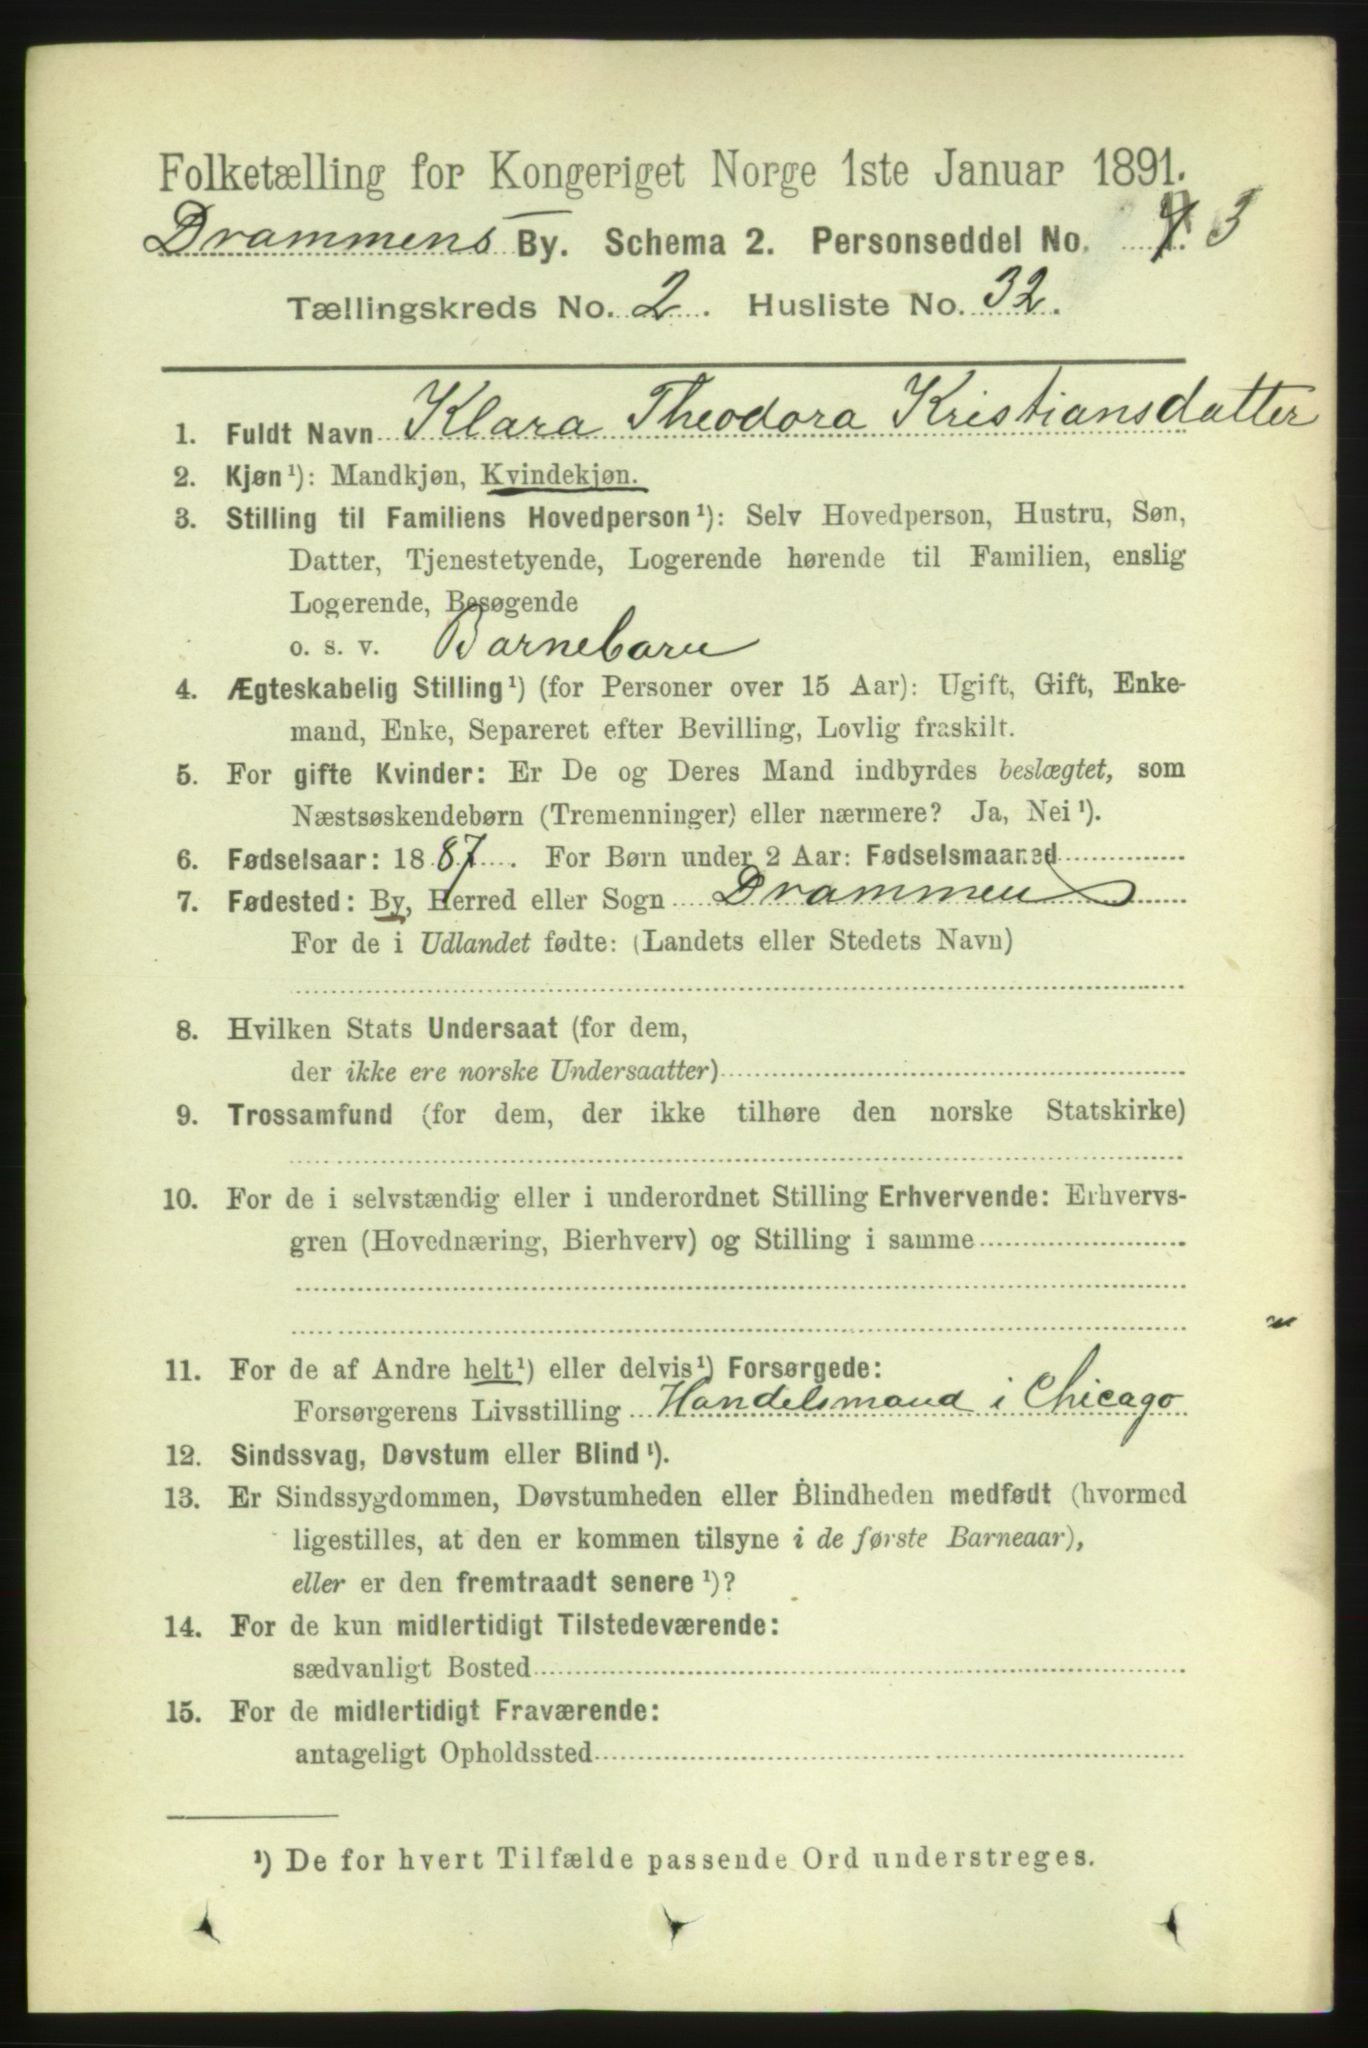 Folketælling for Kongeriget Norge 1ste Januar 1891.
Drammens By. Schema 2. Personseddel No. 3
Tællingskreds No. 2. Husliste No. 32.
1. Fuldt Navn Klara Theodora Kristiansdatter
2. Kjøn¹): Mandkjøn, Kvindekjøn.
3. Stilling til Familiens Hovedperson¹): Selv Hovedperson, Hustru, Søn,
Datter, Tjenestetyende, Logerende hørende til Familien, enslig
Logerende, Besøgende
o. s. v. Barnebarn
4. Ægteskabelig Stilling¹) (for Personer over 15 Aar): Ugift, Gift, Enke-
mand, Enke, Separeret efter Bevilling, Lovlig fraskilt.
5. For gifte Kvinder: Er De og Deres Mand indbyrdes beslægtet, som
Næstsøskendebørn (Tremenninger) eller nærmere? Ja, Nei¹).
6. Fødselsaar: 1887. For Børn under 2 Aar: Fødselsmaaned
7. Fødested: By, Herred eller Sogn Drammen
For de i Udlandet fødte: (Landets eller Stedets Navn)
8. Hvilken Stats Undersaat (for dem,
der ikke ere norske Undersaatter)
9. Trossamfund (for dem, der ikke tilhøre den norske Statskirke)
10. For de i selvstændig eller i underordnet Stilling Erhvervende: Erhvervs-
gren (Hovednæring, Bierhverv) og Stilling i samme
11. For de af Andre helt¹) eller delvis¹) Forsørgede:
Forsørgerens Livsstilling Handelsmand i Chicago
12. Sindssvag, Døvstum eller Blind¹).
13. Er Sindssygdommen, Døvstumheden eller Blindheden medfødt (hvormed
ligestilles, at den er kommen tilsyne i de første Barneaar),
eller er den fremtraadt senere¹)?
14. For de kun midlertidigt Tilstedeværende:
sædvanligt Bosted
15. For de midlertidigt Fraværende:
antageligt Opholdssted
¹) De for hvert Tilfælde passende Ord understreges.